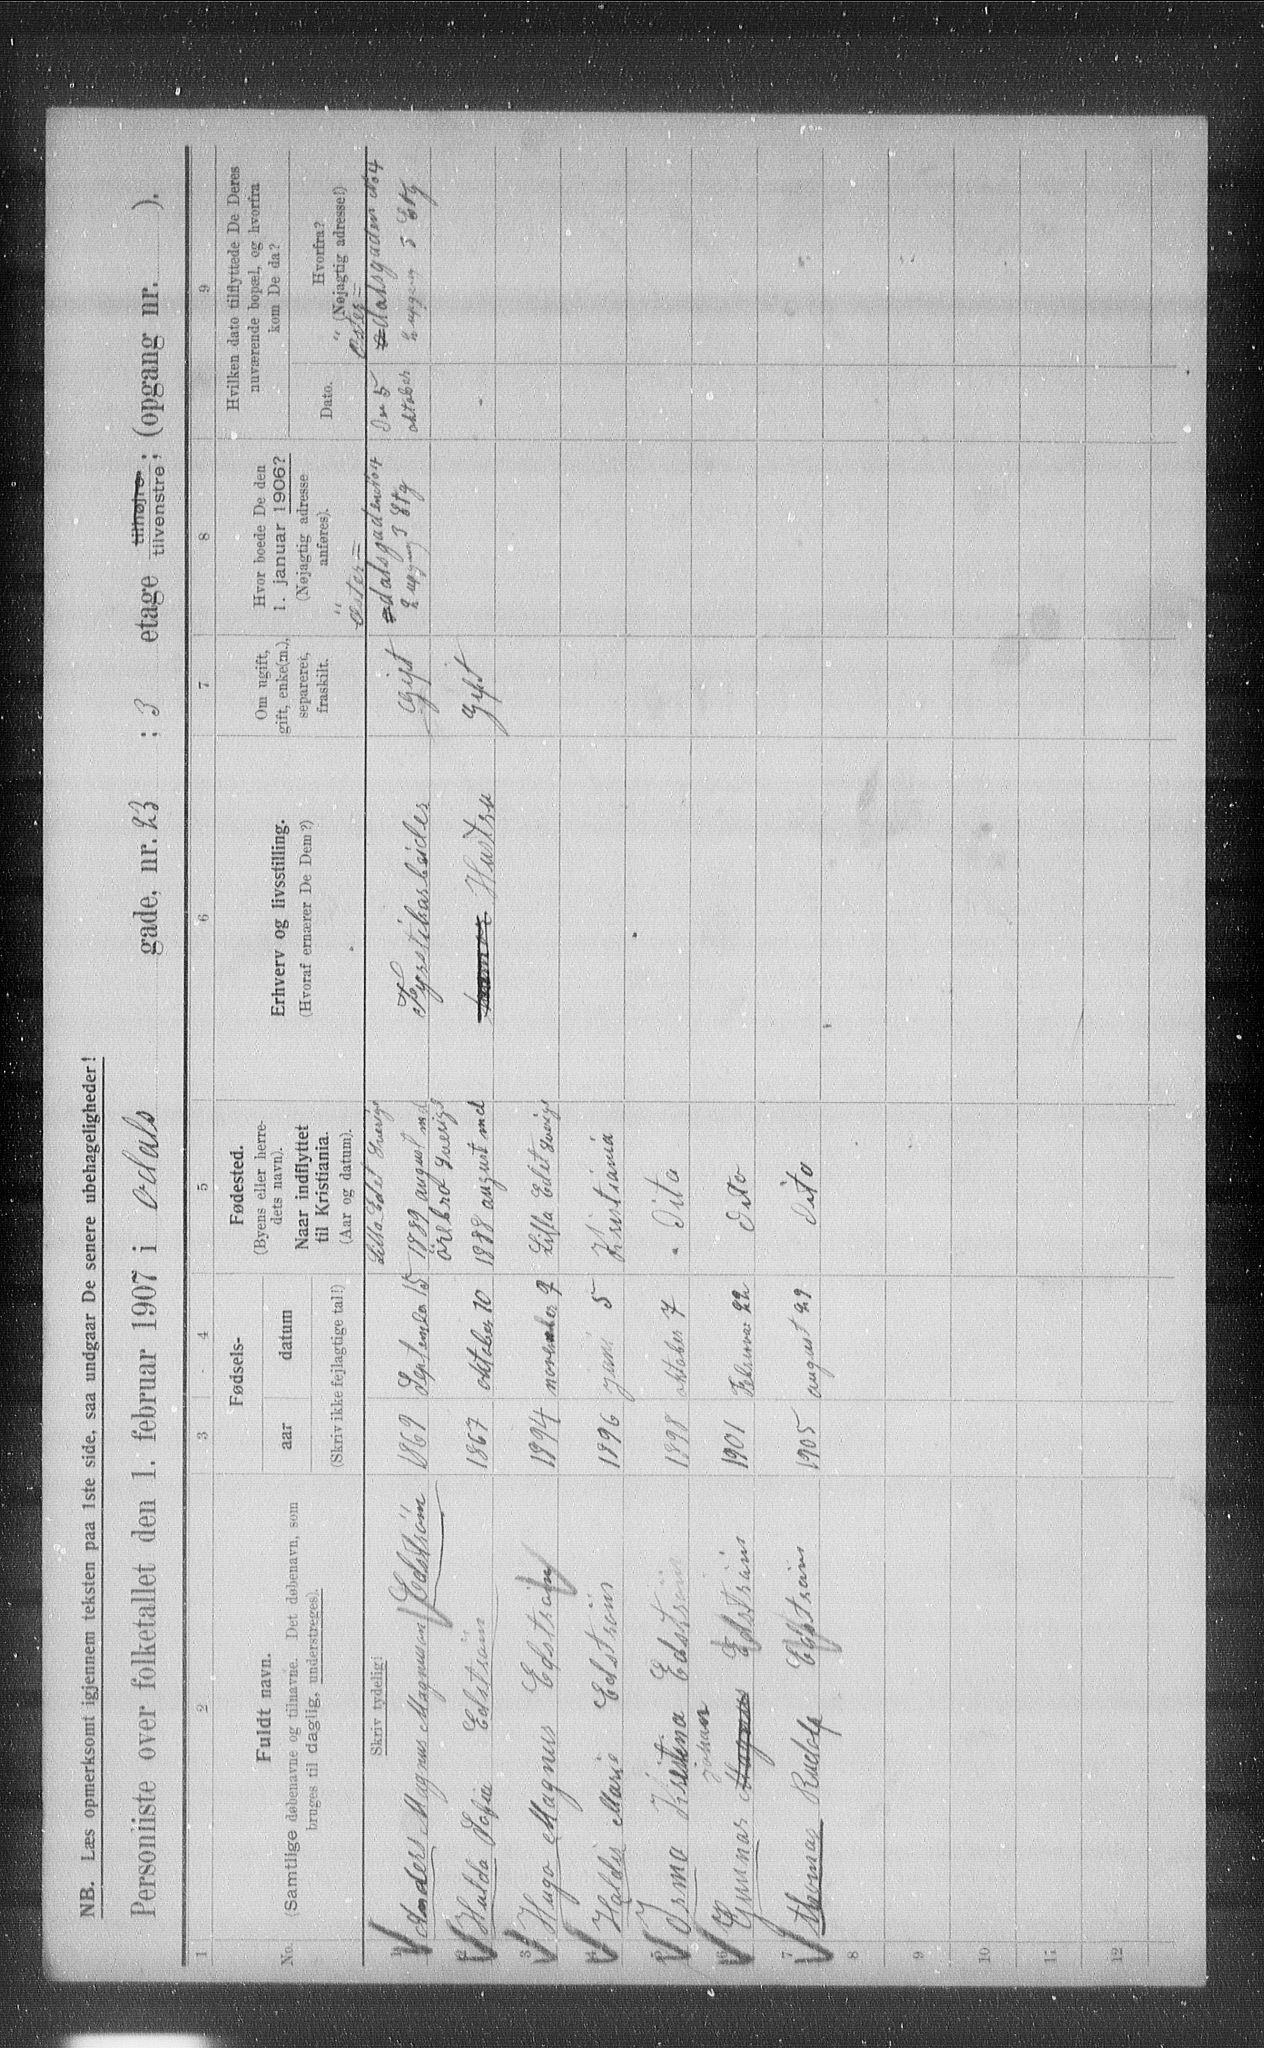 NB. Læs opmerksomt igjennem teksten paa 1ste side, saa undgaar De senere ubehageligheder!
Personliste over folketallet den 1. februar 1907 i Odals gade, nr. 23 : 3 etage tilhøjre tilvenstre; (opgang nr. ).
1 2 3 4 5 6 7 8 9
No.
Fuldt navn.
(Samtlige døbenavne og tilnavne. Det døbenavn, som
bruges til daglig, understreges).
Skriv tydelig!
Fødsels-
aar datum
(Skriv ikke fejlagtige tal!)
Fødested.
(Byens eller herre-
dets navn).
Naar indflyttet
til Kristiania.
(Aar og datum).
Erhverv og livsstilling.
(Hvoraf ernærer De Dem?)
Om ugift,
gift, enke(m.),
separeret,
fraskilt.
Hvor boede De den
1. januar 1906?
(Nøjagtig adresse
anføres).
Hvilken dato tilflyttede De Deres
nuværende bopæl, og hvorfra
kom De da?
Dato.
Hvorfra?
(Nøjagtig adresse!)
1 Anders Magnus Magnuson Edström 1869 September 15 Lilla Edet Sverige
1889 august md Fyrstikarbeider Gift Öster=
dalsgaden No 4
2 opgang 3 Etg Den 5
oktober Öster=
dalsgaden No 4
2 opgang 3 Etg
2 Hulda Sofia Edström 1867 oktober 10 Örebro Sverige
1888 august md Hustru Gift
3 Hugo Magnus Edström 1894 november 9 Lilla Edet Sverige
4 Haldis Marie Edström 1896 juni 5 Kristiania
5 Irma Kristina Edström 1898 oktober 7 Dito
6 Gunnar Magnus Johan Edström 1901 Februar 22 Dito
7 Thomas Rudolf Edström 1905 august 29 Dito
8
9
10
11
12